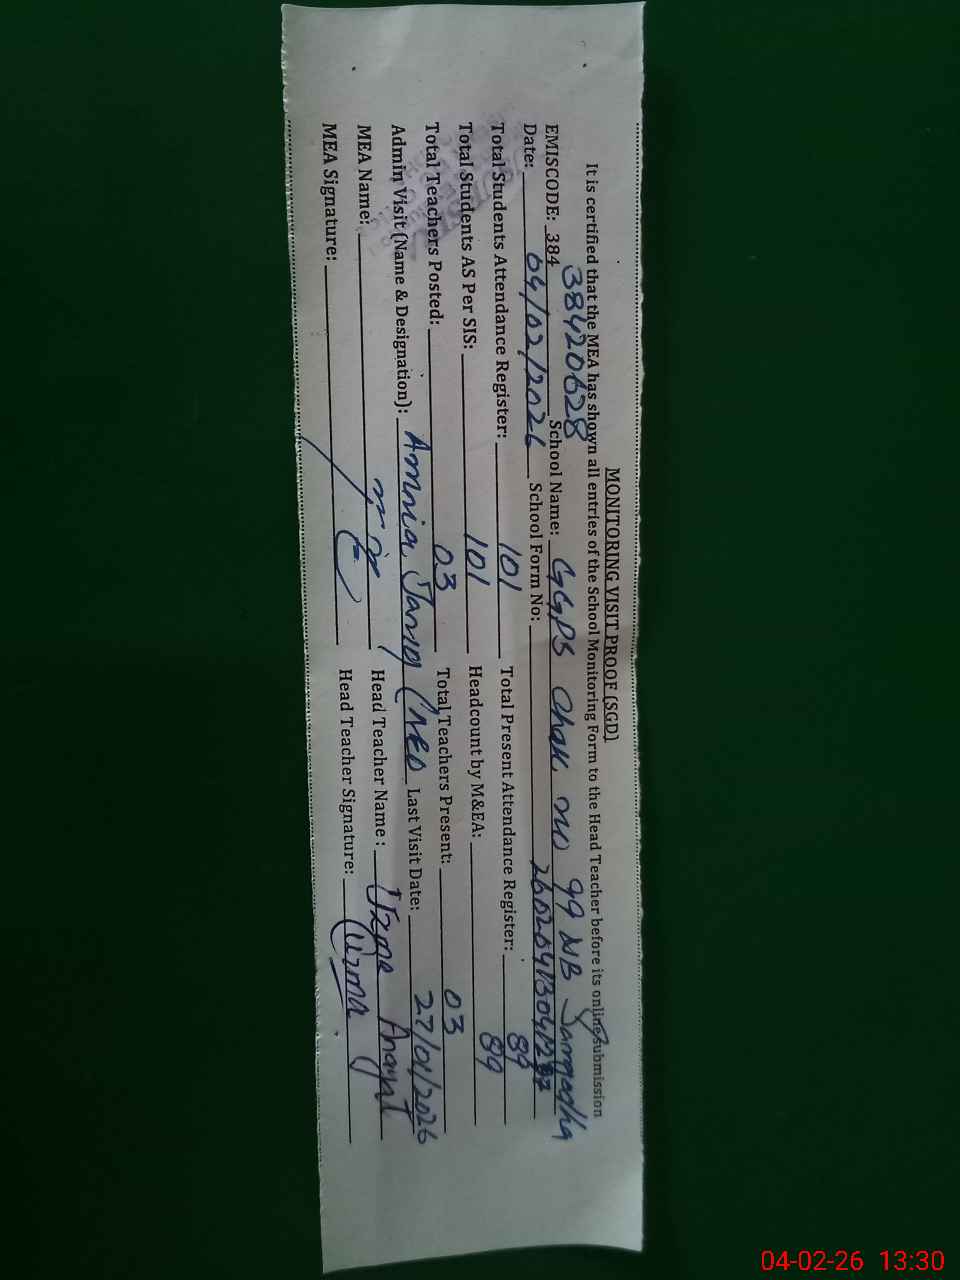 MONITORING VISIT PROOF (SGD)
It is certified that the MEA has shown all entries of the School Monitoring Form to the Head Teacher before its online submission
EMISCODE: 384 38420628 School Name: GGPS Chak no 99 NB Sargodha
Date: 04/02/2026 School Form No:
Total Students Attendance Register: 101 Total Present Attendance Register: 89
Total Students AS Per SIS: 101 Headcount by M&EA: 89
Total Teachers Posted: 03 Total Teachers Present: 03
Admin Visit (Name & Designation): Last Visit Date: 27/01/2026
MEA Name: Head Teacher Name: Uzma
MEA Signature: Head Teacher Signature: Uzma
04-02-26 13:30